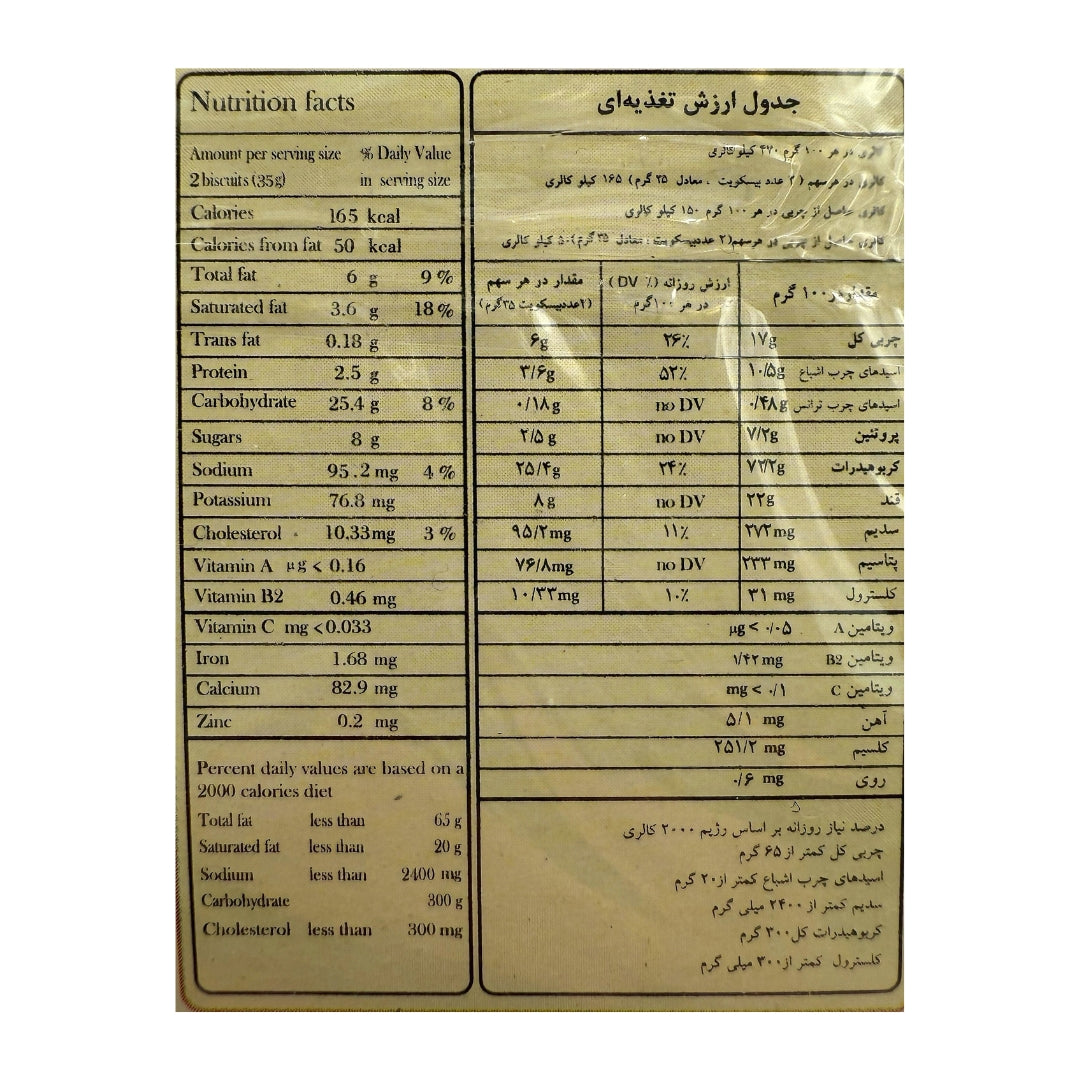 Nutrition facts
Amount per serving size % Daily Value
2 biscuits (35g) in serving size
Calories 165 kcal
Calories from fat 50 kcal
Total fat 6 g 9 %
Saturated fat 3.6 g 18 %
Trans fat 0.18 g
Protein 2.5 g
Carbohydrate 25.4 g 8 %
Sugars 8 g
Sodium 95.2 mg 4 %
Potassium 76.8 mg
Cholesterol 10.33mg 3 %
Vitamin A µg < 0.16
Vitamin B2 0.46 mg
Vitamin C mg <0.033
Iron 1.68 mg
Calcium 82.9 mg
Zinc 0.2 mg
Percent daily values are based on a
2000 calories diet
Total fat less than 65 g
Saturated fat less than 20 g
Sodium less than 2400 mg
Carbohydrate 300 g
Cholesterol less than 300 mg
جدول ارزش تغذیه‌ای
کالری در هر ۱۰۰ گرم ۴۷۰ کیلو کالری
کالری در هرسهم (۲ عدد بیسکویت ، معادل ۳۵ گرم) ۱۶۵ کیلو کالری
کالری حاصل از چربی در هر ۱۰۰ گرم ۱۵۰ کیلو کالری
کالری حاصل از چربی در هرسهم(۲ عددبیسکویت ، معادل ۳۵ گرم)۵۰ کیلو کالری
مقدار در ۱۰۰ گرم ارزش روزانه (٪ DV) مقدار در هر سهم
در هر ۱۰۰گرم (۲عددبیسکویت ۳۵گرم)
چربی کل ۱۷g ۲۶٪ ۶g
اسیدهای چرب اشباع ۱۰/۵g ۵۲٪ ۳/۶g
اسیدهای چرب ترانس ۰/۴۸g no DV ۰/۱۸g
پروتئین ۷/۲g no DV ۲/۵ g
کربوهیدرات ۷۲/۲g ۲۴٪ ۲۵/۴g
قند ۲۲g no DV ۸g
سدیم ۲۷۲mg ۱۱٪ ۹۵/۲mg
پتاسیم ۲۳۳ mg no DV ۷۶/۸mg
کلسترول ۳۱ mg ۱۰٪ ۱۰/۳۳mg
ویتامین A µg < ۰/۰۵
ویتامین B2 ۱/۴۲mg
ویتامین C mg < ۰/۱
آهن ۵/۱ mg
کلسیم ۲۵۱/۲ mg
روی ۰/۶ mg
درصد نیاز روزانه بر اساس رژیم ۲۰۰۰ کالری
چربی کل کمتر از ۶۵ گرم
اسیدهای چرب اشباع کمتر از۲۰ گرم
سدیم کمتر از ۲۴۰۰ میلی گرم
کربوهیدرات کل۳۰۰ گرم
کلسترول کمتر از۳۰۰ میلی گرم